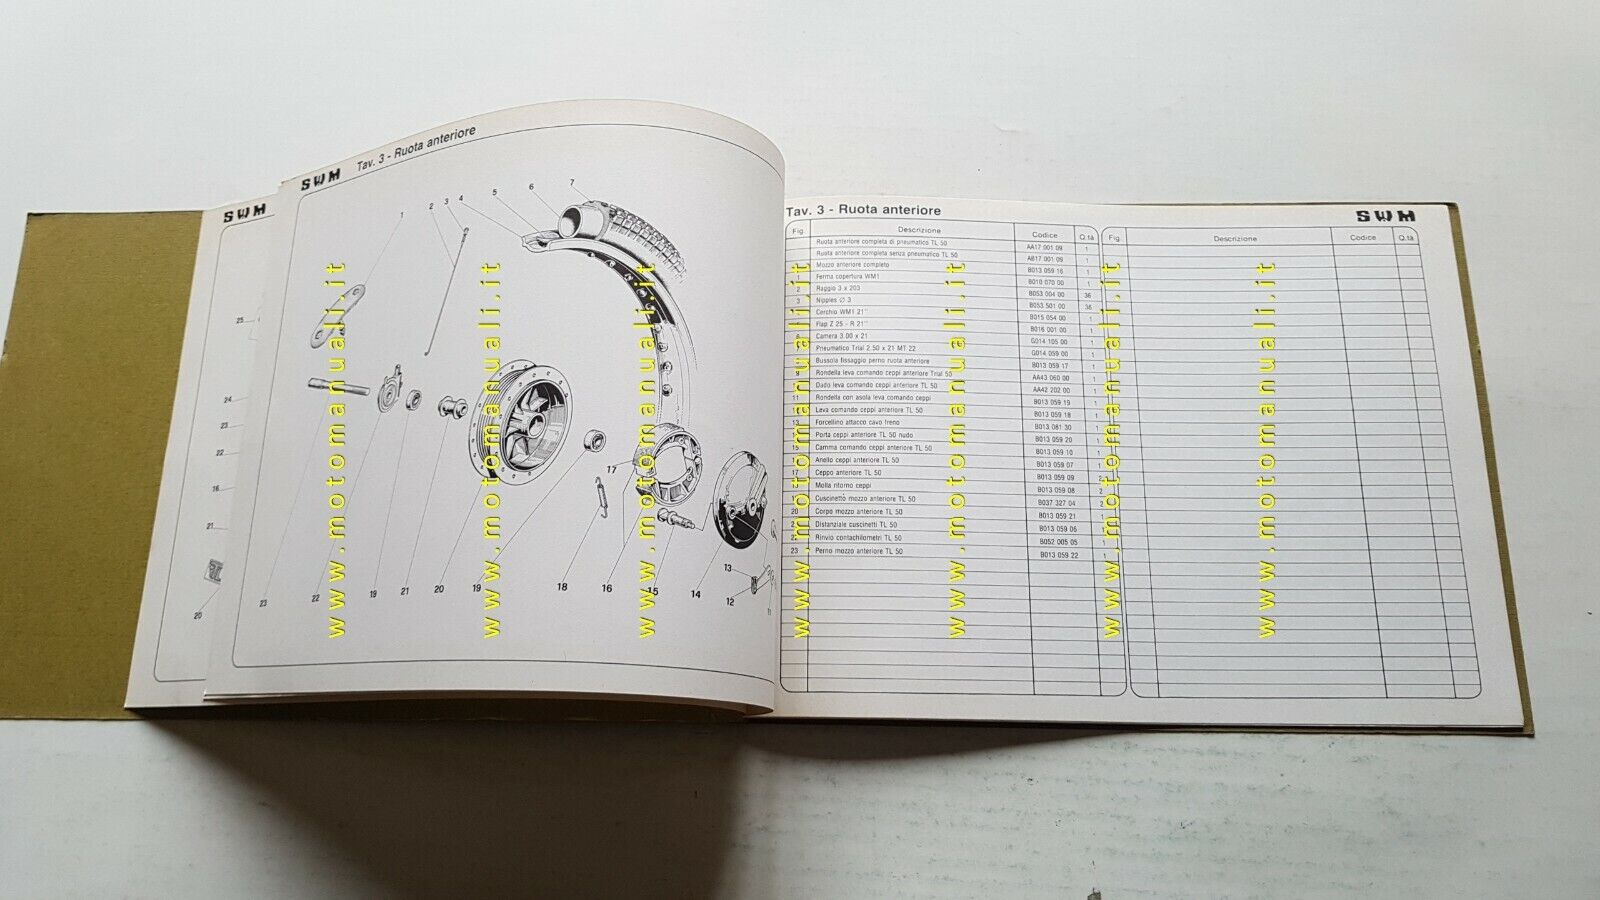 SWM
SWM Tav. 3 - Ruota anteriore
1 2 3 4 5 6 7
25
24
23
22
16
21
20
17
23 22 19 21 20 19 18 16 15 14 13
12
11
Tav. 3 - Ruota anteriore SWM
Fig. Descrizione Codice Q.tà Fig. Descrizione Codice Q.tà
Ruota anteriore completa di pneumatico TL 50 AA17 001 09 1
Ruota anteriore completa senza pneumatico TL 50 AB17 001 09 1
Mozzo anteriore completo B013 059 16 1
1 Ferma copertura WM1 B010 070 00 1
2 Raggio 3 x 203 B053 004 00 36
3 Nipples Ø 3 B053 501 00 36
Cerchio WM1 21" B015 054 00 1
Flap Z 25 - R 21" B016 001 00 1
Camera 3.00 x 21 G014 105 00 1
Pneumatico Trial 2.50 x 21 MT 22 G014 059 00 1
Bussola fissaggio perno ruota anteriore B013 059 17 1
9 Rondella leva comando ceppi anteriore Trial 50 AA43 060 00 1
Dado leva comando ceppi anteriore TL 50 AA42 202 00 1
11 Rondella con asola leva comando ceppi B013 059 19 1
Leva comando ceppi anteriore TL 50 B013 059 18 1
13 Forcellino attacco cavo freno B013 081 30 1
Porta ceppi anteriore TL 50 nudo B013 059 20 1
15 Camma comando ceppi anteriore TL 50 B013 059 10 1
Anello ceppi anteriore TL 50 B013 059 07 1
17 Ceppo anteriore TL 50 B013 059 09 2
Molla ritorno ceppi B013 059 08 2
Cuscinetto mozzo anteriore TL 50 B037 327 04 2
20 Corpo mozzo anteriore TL 50 B013 059 21 1
Distanziale cuscinetti TL 50 B013 059 06 1
22 Rinvio contachilometri TL 50 B052 005 05 1
23 Perno mozzo anteriore TL 50 B013 059 22 1
www.motomanuali.it
www.motomanuali.it
www.motomanuali.it
www.motomanuali.it
www.motomanuali.it
www.motomanuali.it
www.motomanuali.it